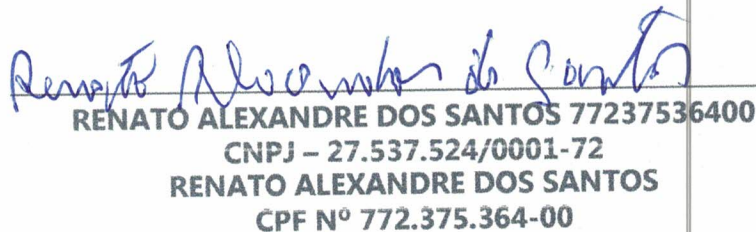 Renato Alexandre do Santos
RENATO ALEXANDRE DOS SANTOS 77237536400
CNPJ – 27.537.524/0001-72
RENATO ALEXANDRE DOS SANTOS
CPF Nº 772.375.364-00